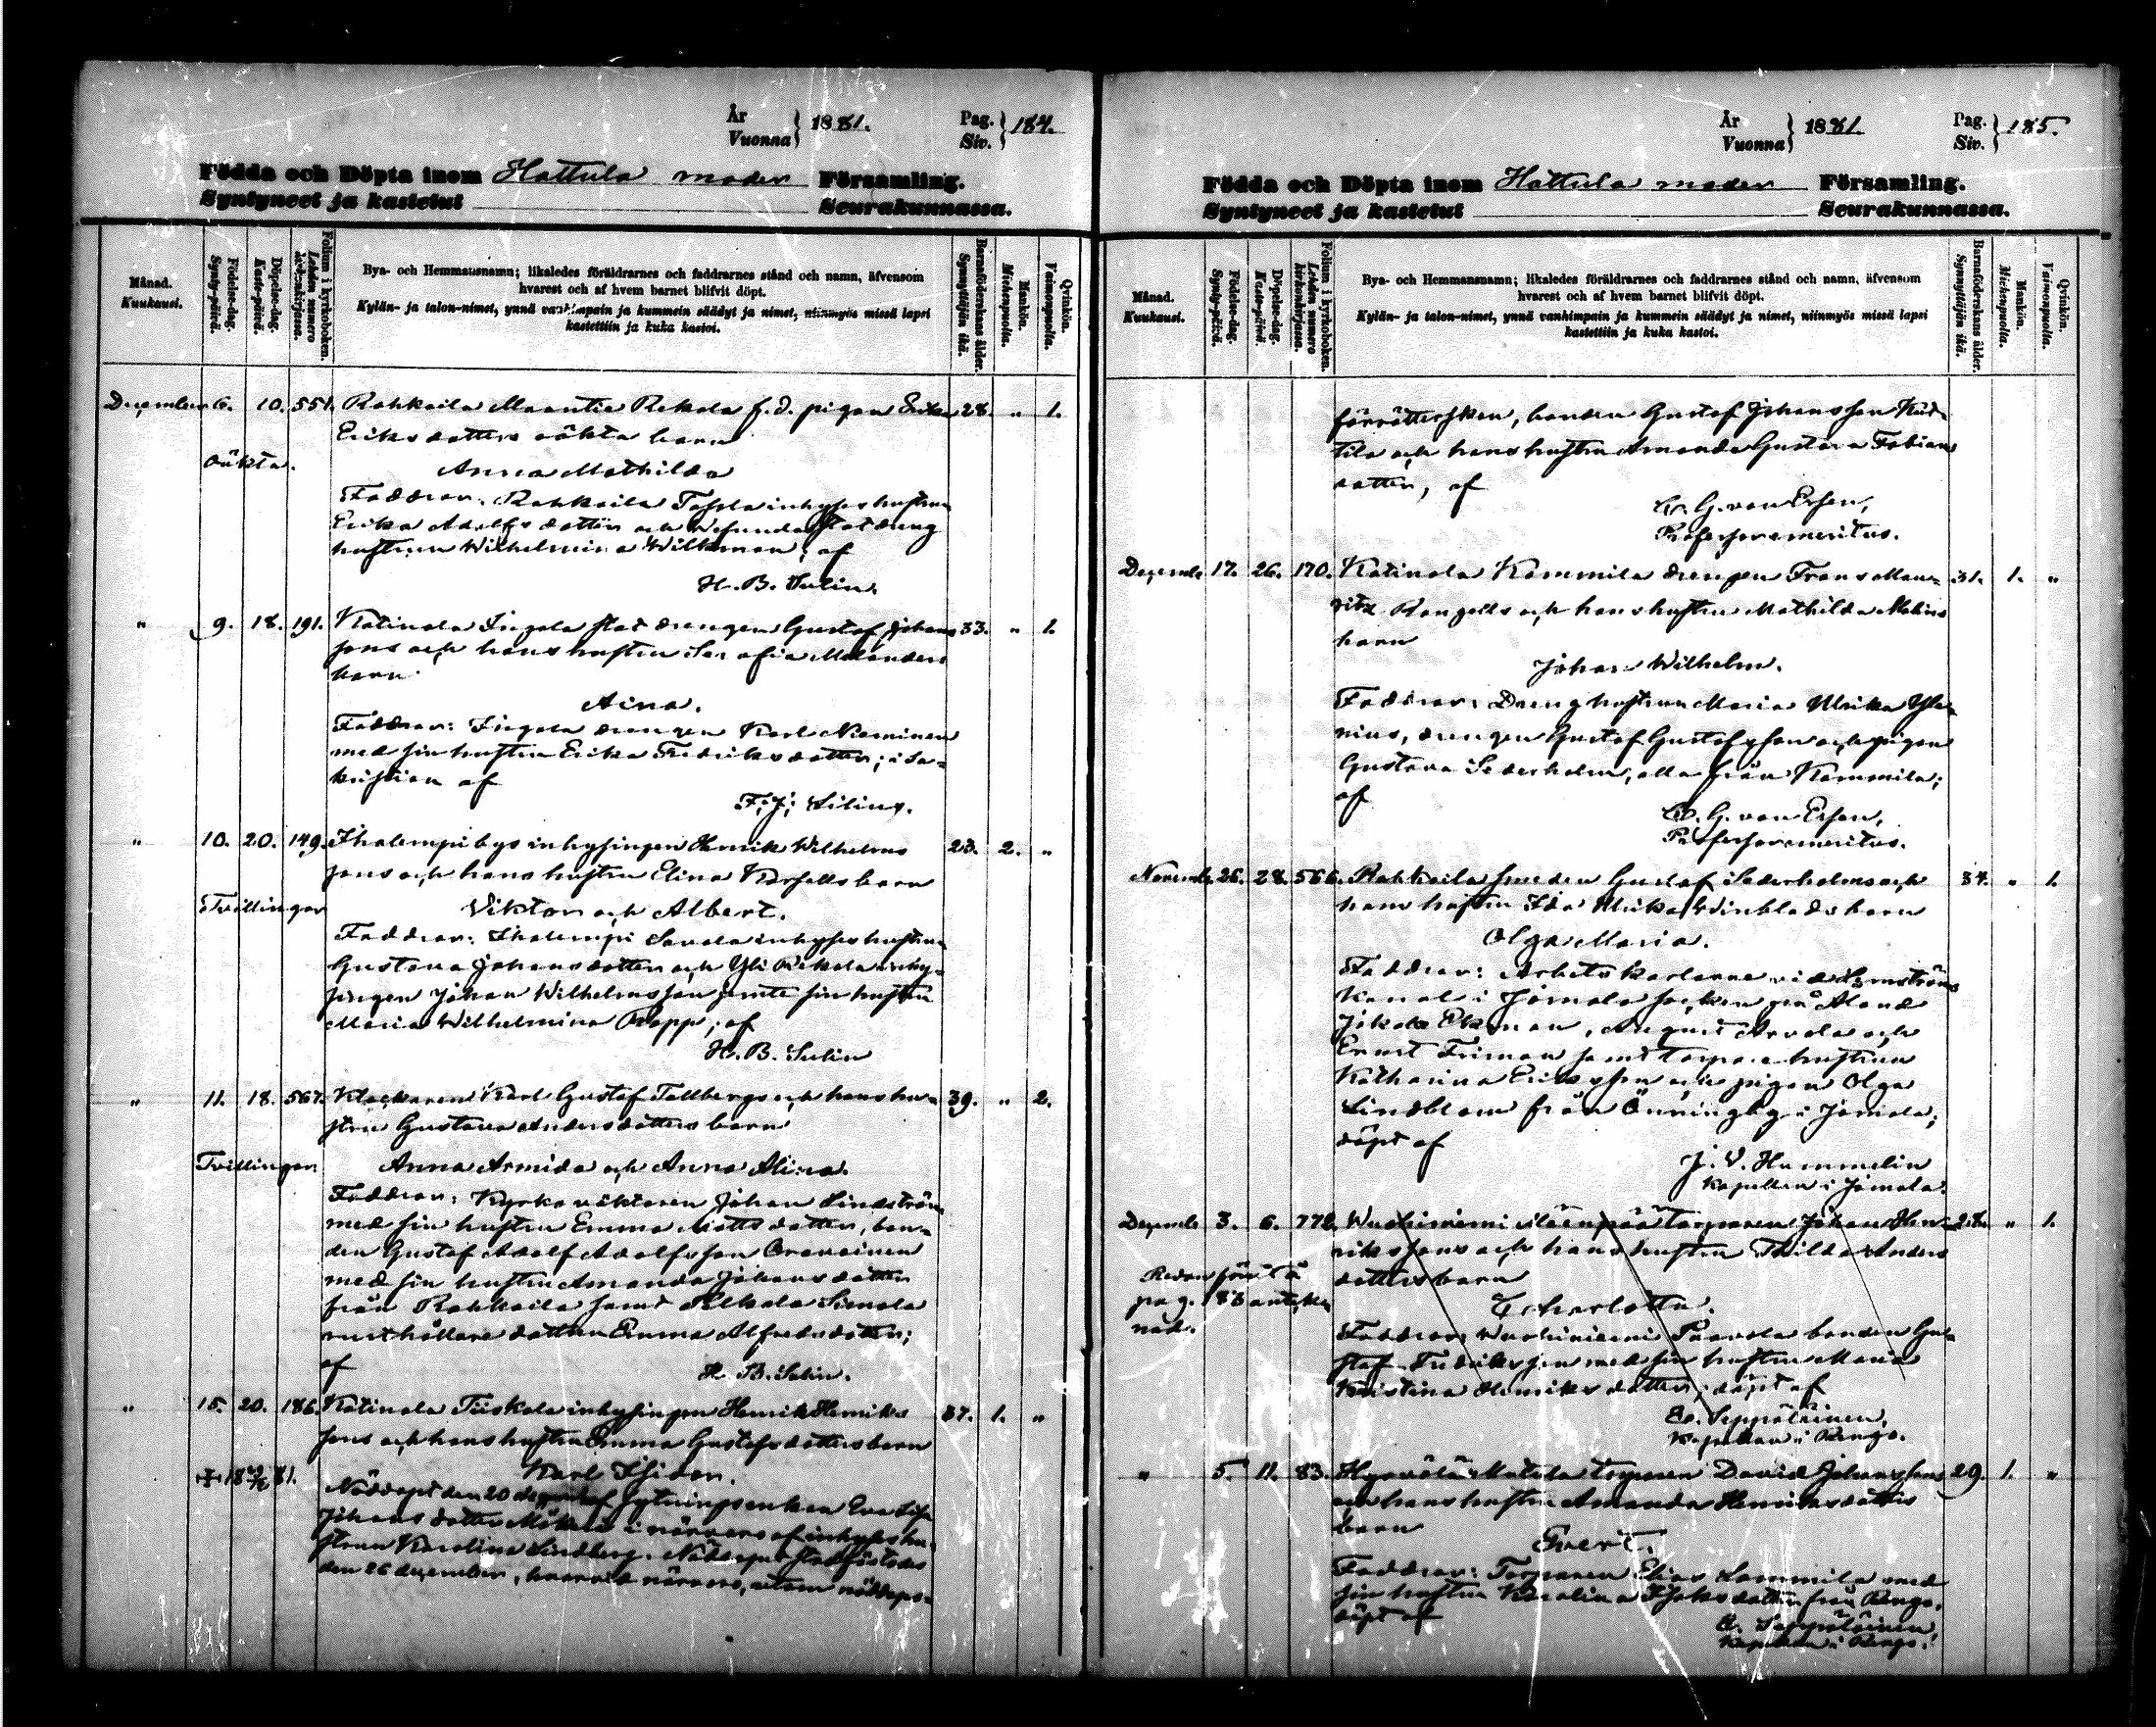 År
Vuonna } 1881.
Pag.
Siv. } 184.
Födda och Döpta inom Hattula moder Församling.
Syntyneet ja kastetut Seurakunnassa.
Månad.
Kuukausi.
Födelse-dag.
Synty-päivä.
Döpelse-dag.
Kaste-päivä.
Folium i kyrkoboken.
Lehden numero kirkonkirjassa.
Bya- och Hemmansnamn; likaledes föräldrarnes och faddrarnes stånd och namn, äfvensom
hvarest och af hvem barnet blifvit döpt.
Kylän- ja talon-nimet, ynnä vanhimpain ja kummein säädyt ja nimet, niinmyös missä lapsi
kastettiin ja kuka kastoi.
Barnaföderskans ålder.
Synnyttäjän ikä.
Mankön.
Miehenpuolta.
Qvinkön.
Vaimonpuolta.
December 6. 10. 551. Rahkoila Maantie Rekola f. d. pigan Erika 28. " 1.
Eriksdotters oäkta barn
oäkta.
Anna Mathilda
Faddrar: Rahkoila inhyses hustrun
Erika Adolfsdotter och statdräng
hustrun Wilhelmina Willman; af
H. B. Sulin.
" 9. 18. 191. Katinala Ingala statdrengen Gustaf Johans 33. " 1.
sons och hans hustru Serafia Melanders
barn
Aina.
Faddrar: Ingala drengen Karl Nieminen
med sin hustru Erika Fredriksdotter; i sa-
kristian af
F. J. Silius.
" 10. 20. 149. Ihalempi bys inhysingen Henrik Wilhelms 23. 2. "
sons och hans hustru Elina Karsells barn
Tvillingar
Viktor och Albert.
Faddrar: Ihalempi Savola inhyses hustrun
Gustava Johansdotter och Yli Rekola inhy-
singen Johan Wilhelmsson jemte sin hustru
Maria Wilhelmina Rapp; af
H. B. Sulin
" 11. 18. 567. Klockaren Karl Gustaf Tallbergs och hans hu- 39. " 2.
stru Gustava Andersdotters barn
Tvillingar
Anna Armida och Anna Alina.
Faddrar: Kyrkovaktaren Johan Lindström
med sin hustru Emma Mattsdotter, bon-
den Gustaf Adolf Adolfsson Oravainen
med sin hustru Amanda Johansdotter
från Rahkoila samt Pelkola Simola
rusthållare dotter Emma Alfredsdotter;
af
H. B. Sulin.
" 15. 20. 186. Katinala Tiiskola inhysingen Henrik Henriks 37. 1. "
sons och hans hustru Emma Gustafsdotters barn
Karl Isidor.
Nöddöpt den 20 december af sytningsenkan Eva Lisa
Johansdotter i närvaro af inhyses hu-
strun Karolina Lindberg. Nöddopet stadfästades
den 26 december, hvarvid närvaro, utom nöddops-
År
Vuonna } 1881.
Pag.
Siv. } 185.
Födda och Döpta inom Hattula moder Församling.
Syntyneet ja kastetut Seurakunnassa.
Månad.
Kuukausi.
Födelse-dag.
Synty-päivä.
Döpelse-dag.
Kaste-päivä.
Folium i kyrkoboken.
Lehden numero kirkonkirjassa.
Bya- och Hemmansnamn; likaledes föräldrarnes och faddrarnes stånd och namn, äfvensom
hvarest och af hvem barnet blifvit döpt.
Kylän- ja talon-nimet, ynnä vanhimpain ja kummein säädyt ja nimet, niinmyös missä lapsi
kastettiin ja kuka kastoi.
Barnaföderskans ålder.
Synnyttäjän ikä.
Mankön.
Miehenpuolta.
Qvinkön.
Vaimonpuolta.
förrätterskan, bonden Gustaf Johansson
tila och hans hustru Amanda Gustava Fabians
dotter, af
C. G. von Essen,
Professor emeritus.
Decemb. 17. 26. 170. Katinala Kammila drengen Frans Mau- 31. 1. "
ritz och hans hustru Mathilda
barn
Johan Wilhelm.
Faddrar: Dränghustrun Maria Ulrika Yle-
nius, drengen Gustaf Gustafsson och pigan
Gustava Sederholm, alla från Kammila;
af
C. G. von Essen,
Professor emeritus.
Novemb. 26. 28. 566. Rahkoila smeden Gustaf Sederholms och 34. " 1.
hans hustru Ida Ulrika Winblads barn
Olga Maria.
Faddrar: Arbetskarlarne vid Lemströms
Kanal i Jomala socken på Åland
Jakob Ekman, August Arvola och
Ernst Friman samt torpare hustrun
Katharina Eriksson och pigan Olga
Lindblom från Önningby i Jomala;
döpt af
J. V. Hummelin
Kapellan i Jomala.
Decemb. 3. 6. 772. Wuohiniemi torparen Johan Hen- 28. " 1.
rikssons och hans hustru Thilda Anders
dotters barn
Redan förut å
pag. 183 anteck
nad.
Charlotta.
Faddrar: Wuohiniemi Paavola bonden Gu-
staf Fredriksson med sin hustru Maria
Kristina Henriksdotter; döpt af
A. Seppäläinen,
Kapellan i Rengo.
" 5. 11. 83. Hyrvälä Matula torparen David Johanssons 29. 1. "
och hans hustru Amanda Henriksdotters
barn
Evert.
Faddrar: Torparen Elias Lammila med
sin hustru Karolina Isaksdotter från Rengo,
döpt af
A. Seppäläinen,
Kapellan i Rengo.